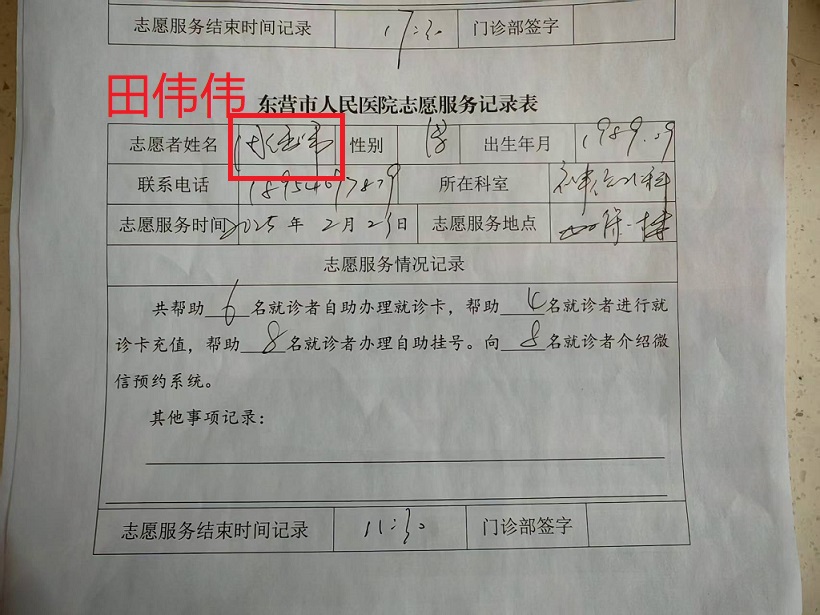 志愿服务结束时间记录 17:30 门诊部签字
田伟伟
东营市人民医院志愿服务记录表
志愿者姓名 性别 出生年月 1989.09
联系电话 所在科室 神经外科
志愿服务时间 2025年2月23日 志愿服务地点
志愿服务情况记录
共帮助6名就诊者自助办理就诊卡，帮助4名就诊者进行就
诊卡充值，帮助8名就诊者办理自助挂号。向8名就诊者介绍微
信预约系统。
其他事项记录：
志愿服务结束时间记录 11:30 门诊部签字